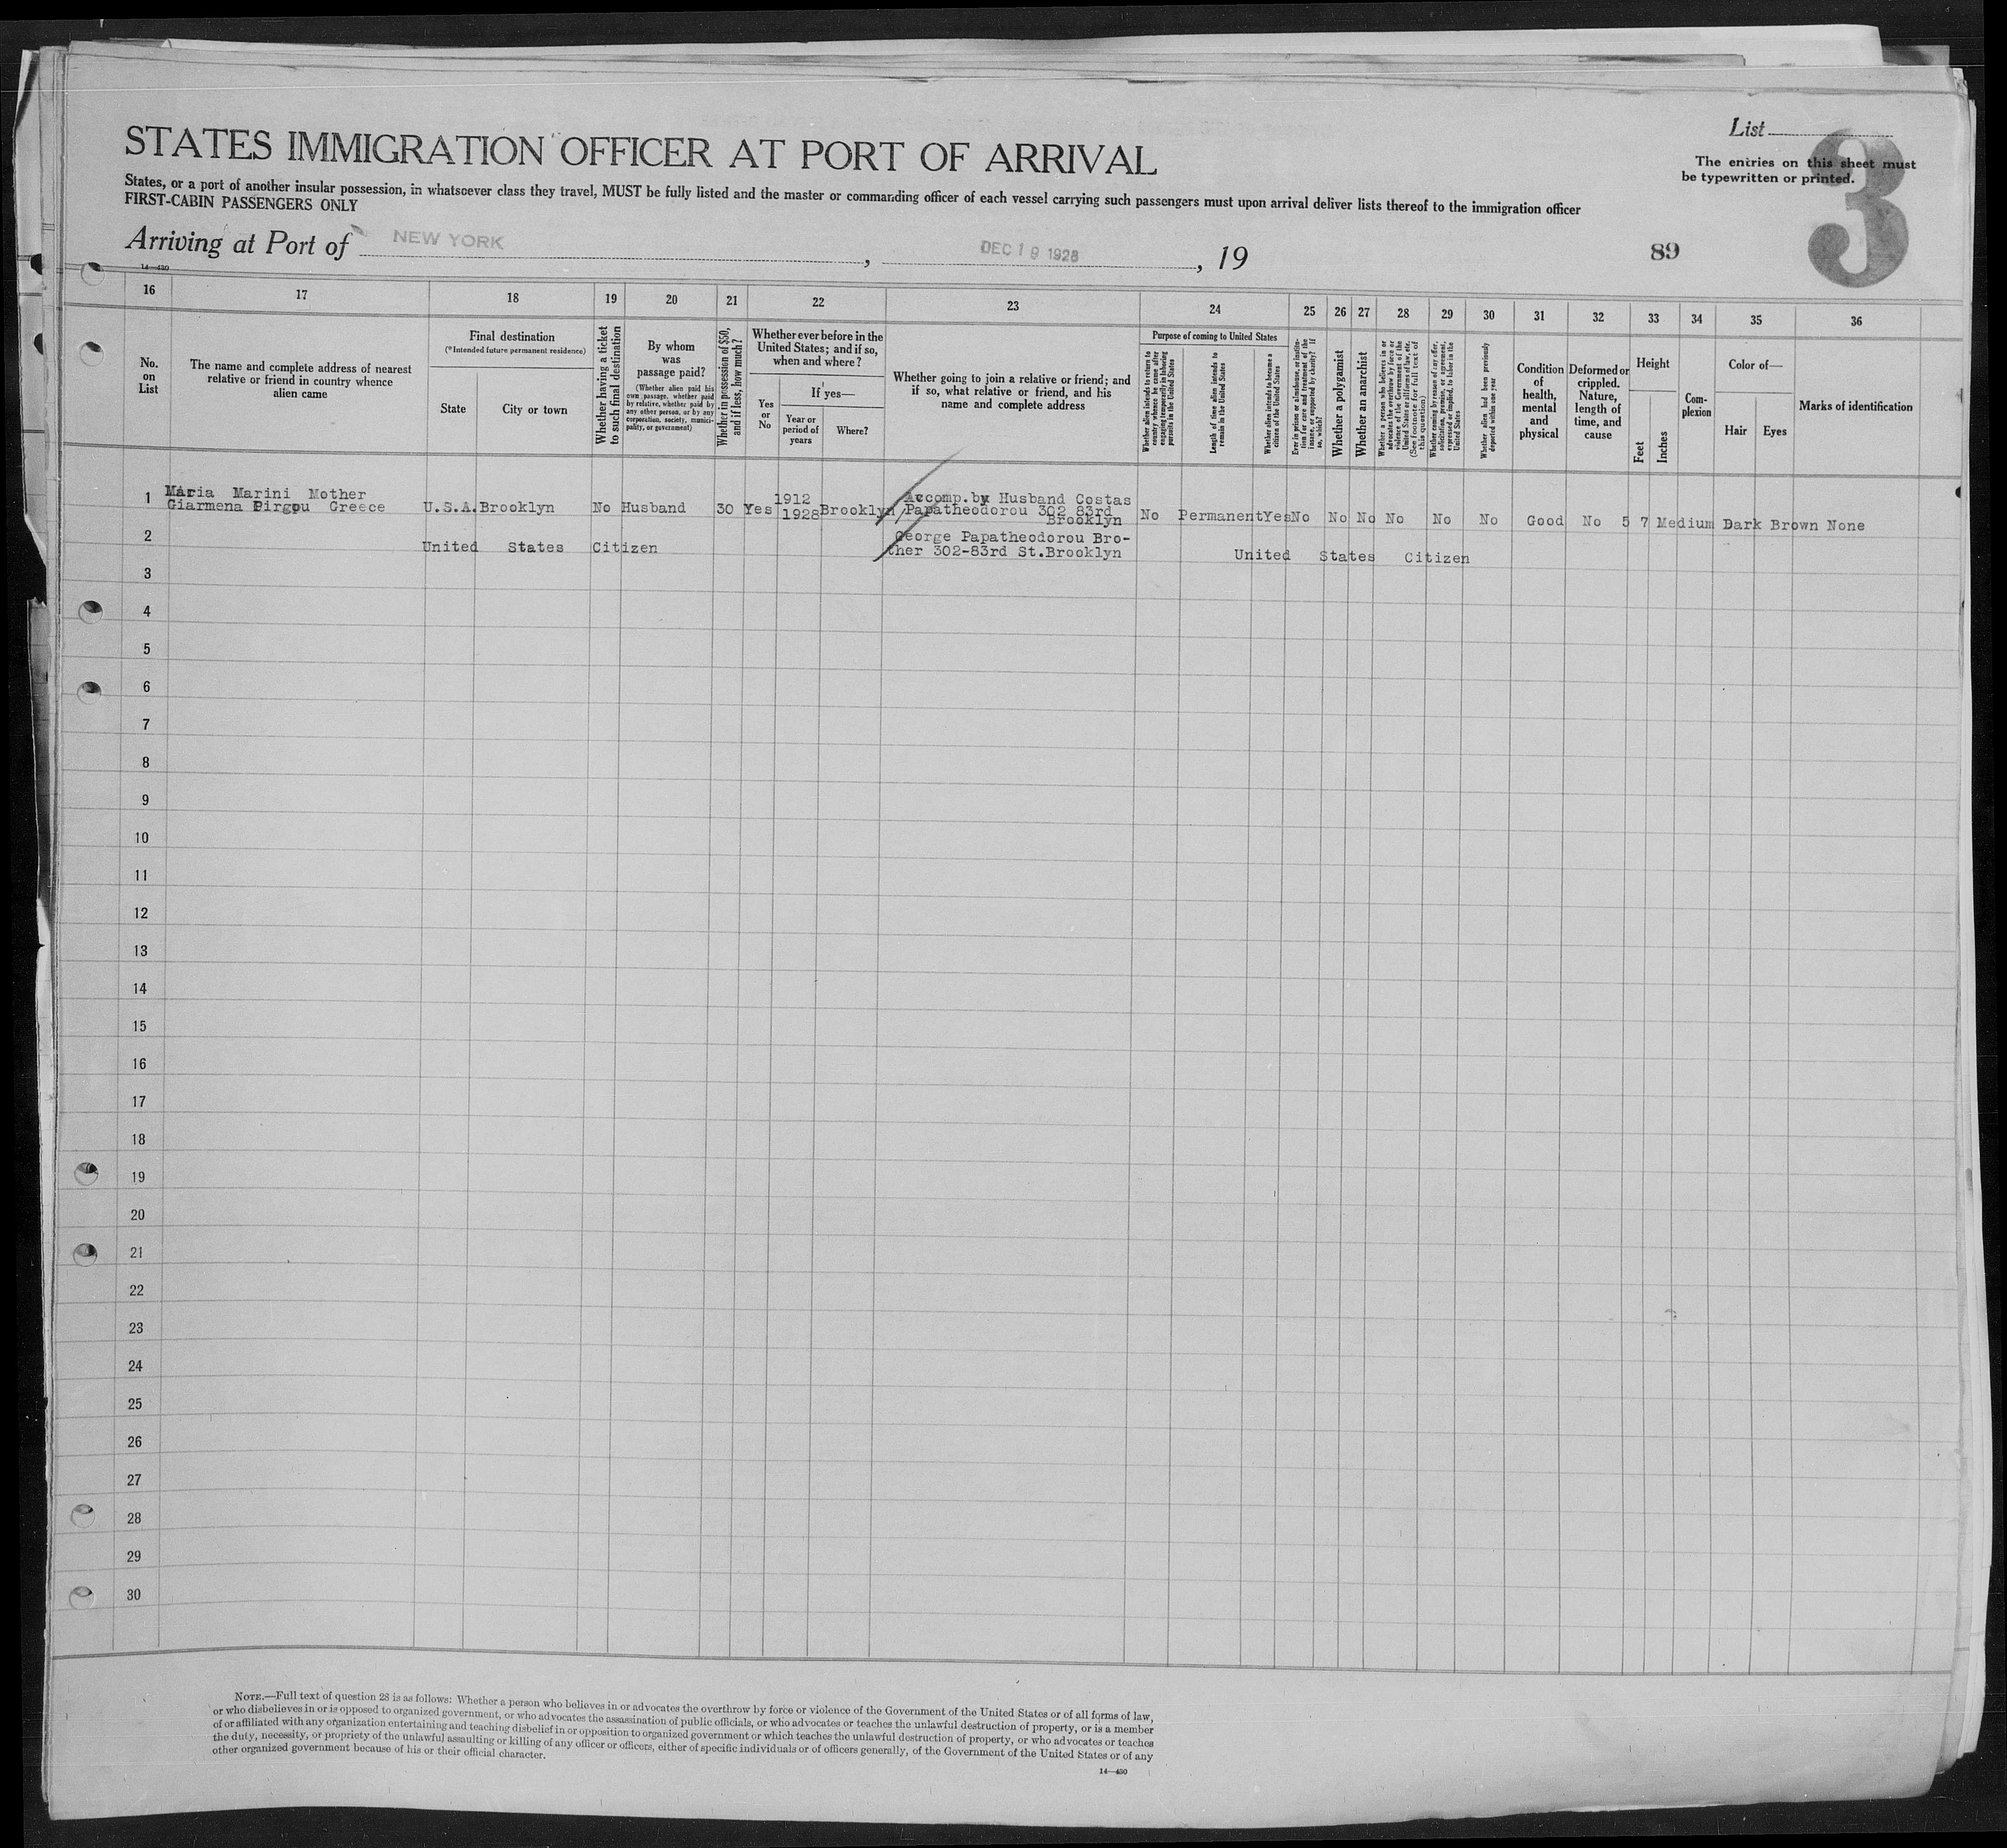 STATES IMMIGRATION OFFICER AT PORT OF ARRIVAL
List
The entries on this sheet must
be typewritten or printed.
3
States, or a port of another insular possession, in whatsoever class they travel, MUST be fully listed and the master or commanding officer of each vessel carrying such passengers must upon arrival deliver lists thereof to the immigration officer
FIRST-CABIN PASSENGERS ONLY
Arriving at Port of NEW YORK , DEC 19 1928 , 19
89
14—430
16 17 18 19 20 21 22 23 24 25 26 27 28 29 30 31 32 33 34 35 36
No.
on
List
The name and complete address of nearest
relative or friend in country whence
alien came
Final destination
(*Intended future permanent residence)
State
City or town
Whether having a ticket
to such final destination
By whom
was
passage paid?
(Whether alien paid his
own passage, whether paid
by relative, whether paid by
any other person, or by any
corporation, society, munici-
pality, or government)
Whether in possession of $50,
and if less, how much?
Whether ever before in the
United States; and if so,
when and where?
Yes
or
No
If yes—
Year or
period of
years
Where?
Whether going to join a relative or friend; and
if so, what relative or friend, and his
name and complete address
Purpose of coming to United States
Whether alien intends to return to
country whence he came after
engaging temporarily in laboring
pursuits in the United States
Length of time alien intends to
remain in the United States
Whether alien intends to become a
citizen of the United States
Ever in prison or almshouse, or institu-
tion for care and treatment of the
insane, or supported by charity? If
so, which?
Whether a polygamist
Whether an anarchist
Whether a person who believes in or
advocates the overthrow by force or
violence of the Government of the
United States or all forms of law, etc.
(See footnote for full text of
this question)
Whether coming by reason of any offer,
solicitation, promise, or agreement,
expressed or implied, to labor in the
United States
Whether alien had been previously
deported within one year
Condition
of
health,
mental
and
physical
Deformed or
crippled.
Nature,
length of
time, and
cause
Height
Feet
Inches
Com-
plexion
Color of—
Hair
Eyes
Marks of identification
1 Maria Marini Mother
Giarmena Pirgou Greece U.S.A. Brooklyn No Husband 30 Yes 1912
1928 Brooklyn Accomp.by Husband Costas
Papatheodorou 302 83rd
Brooklyn No Permanent Yes No No No No No No Good No 5 7 Medium Dark Brown None
2 United States Citizen George Papatheodorou Bro-
ther 302-83rd St.Brooklyn United States Citizen
3
4
5
6
7
8
9
10
11
12
13
14
15
16
17
18
19
20
21
22
23
24
25
26
27
28
29
30
NOTE.—Full text of question 28 is as follows: Whether a person who believes in or advocates the overthrow by force or violence of the Government of the United States or of all forms of law,
or who disbelieves in or is opposed to organized government, or who advocates the assassination of public officials, or who advocates or teaches the unlawful destruction of property, or is a member
of or affiliated with any organization entertaining and teaching disbelief in or opposition to organized government or which teaches the unlawful destruction of property, or who advocates or teaches
the duty, necessity, or propriety of the unlawful assaulting or killing of any officer or officers, either of specific individuals or of officers generally, of the Government of the United States or of any
other organized government because of his or their official character.
14—430